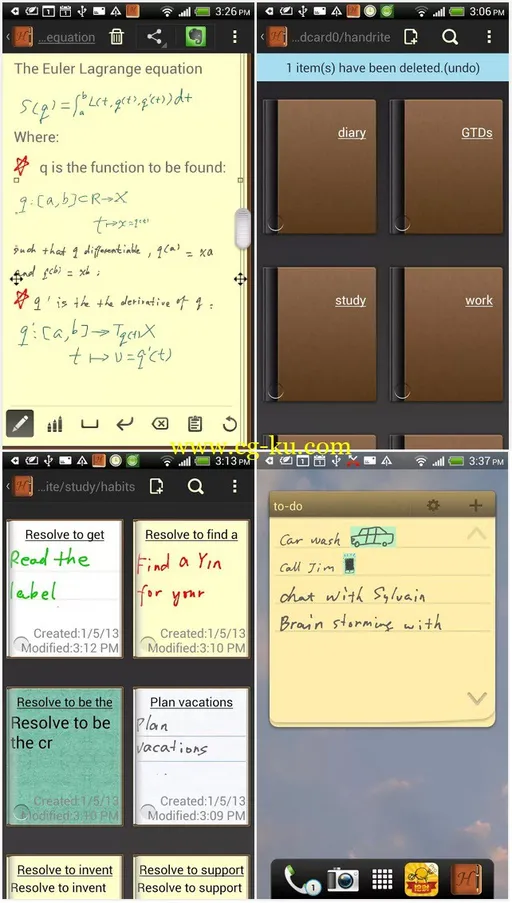 3:26 PM
...equation
The Euler Lagrange equation
S(q)=∫ₐᵇL(t,q(t),q'(t))dt
Where:
q is the function to be found:
q:[a,b]⊂R→X
t↦x=q(t)
such that q differentiable, q(a) = xa
and q(b) = xb;
q' is the the derivative of q:
q':[a,b]→T_{q(t)}X
t↦v=q'(t)
3:06 PM
...dcard0/handrite
1 item(s) have been deleted.(undo)
diary
GTDs
study
work
www.cg-ku.com
3:13 PM
...ite/study/habits
Resolve to get
Read the
label
Created:1/5/13
Modified:3:12 PM
Resolve to find a
Find a Yin
for your
Created:1/5/13
Modified:3:10 PM
Resolve to be the
Resolve to be
the cr
Created:1/5/13
Modified:3:10 PM
Plan vacations
Plan
vacations
Created:1/5/13
Modified:3:09 PM
Resolve to invent
Resolve to invent
Resolve to support
Resolve to support
3:37 PM
to-do
Car wash
Call Jim
chat with Sylvain
Brain storming with
1